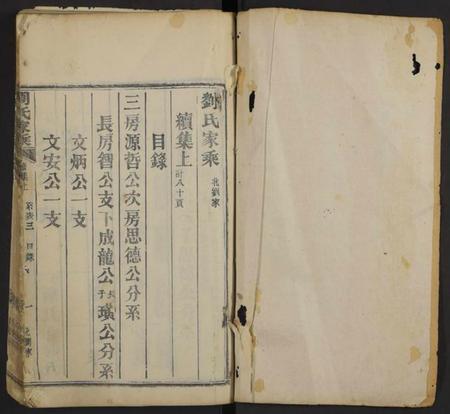 劉氏家乘 北劉家
續集上 計八十頁
目錄
三房源哲公次房思德公分系
長房智公支下成龍公長子璜公分系
文炳公一支
文安公一支
劉氏家乘
目錄
一
北劉家